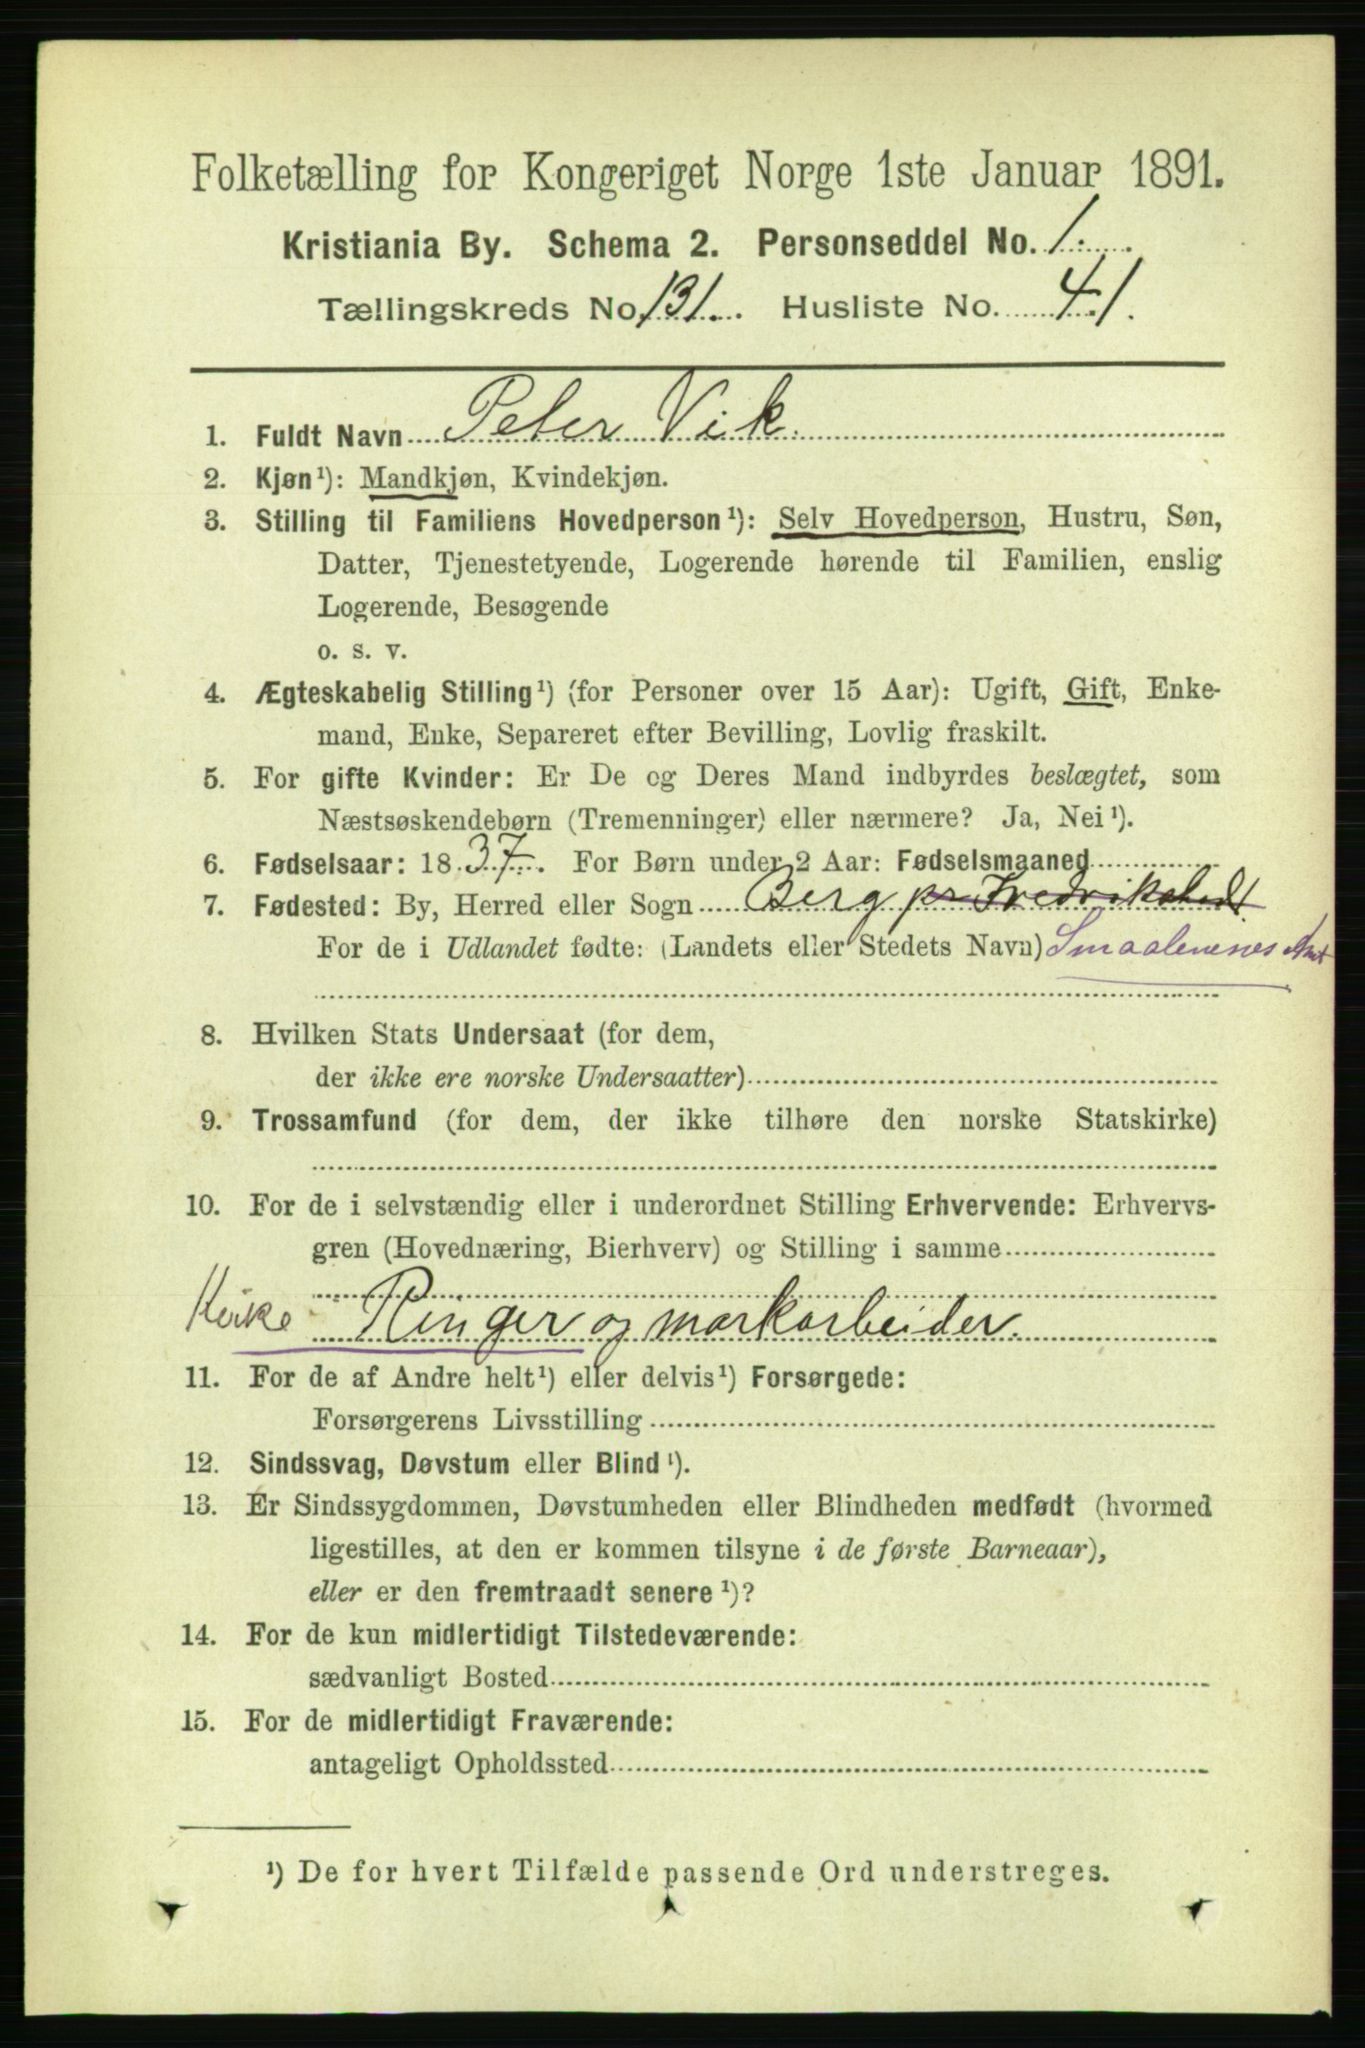 Folketælling for Kongeriget Norge 1ste Januar 1891.
Kristiania By. Schema 2. Personseddel No. 1.
Tællingskreds No. 131. Husliste No. 41.
1. Fuldt Navn Peter Vik.
2. Kjøn¹): Mandkjøn, Kvindekjøn.
3. Stilling til Familiens Hovedperson¹): Selv Hovedperson, Hustru, Søn,
Datter, Tjenestetyende, Logerende hørende til Familien, enslig
Logerende, Besøgende
o. s. v.
4. Ægteskabelig Stilling¹) (for Personer over 15 Aar): Ugift, Gift, Enke-
mand, Enke, Separeret efter Bevilling, Lovlig fraskilt.
5. For gifte Kvinder: Er De og Deres Mand indbyrdes beslægtet, som
Næstsøskendebørn (Tremenninger) eller nærmere? Ja, Nei¹).
6. Fødselsaar: 1837. For Børn under 2 Aar: Fødselsmaaned
7. Fødested: By, Herred eller Sogn Berg pr Fredrikshald
For de i Udlandet fødte: (Landets eller Stedets Navn) Smaalenenes Amt
8. Hvilken Stats Undersaat (for dem,
der ikke ere norske Undersaatter)
9. Trossamfund (for dem, der ikke tilhøre den norske Statskirke)
10. For de i selvstændig eller i underordnet Stilling Erhvervende: Erhvervs-
gren (Hovednæring, Bierhverv) og Stilling i samme
Kirke Ringer og markarbeider.
11. For de af Andre helt¹) eller delvis¹) Forsørgede:
Forsørgerens Livsstilling
12. Sindssvag, Døvstum eller Blind¹).
13. Er Sindssygdommen, Døvstumheden eller Blindheden medfødt (hvormed
ligestilles, at den er kommen tilsyne i de første Barneaar),
eller er den fremtraadt senere¹)?
14. For de kun midlertidigt Tilstedeværende:
sædvanligt Bosted
15. For de midlertidigt Fraværende:
antageligt Opholdssted
¹) De for hvert Tilfælde passende Ord understreges.